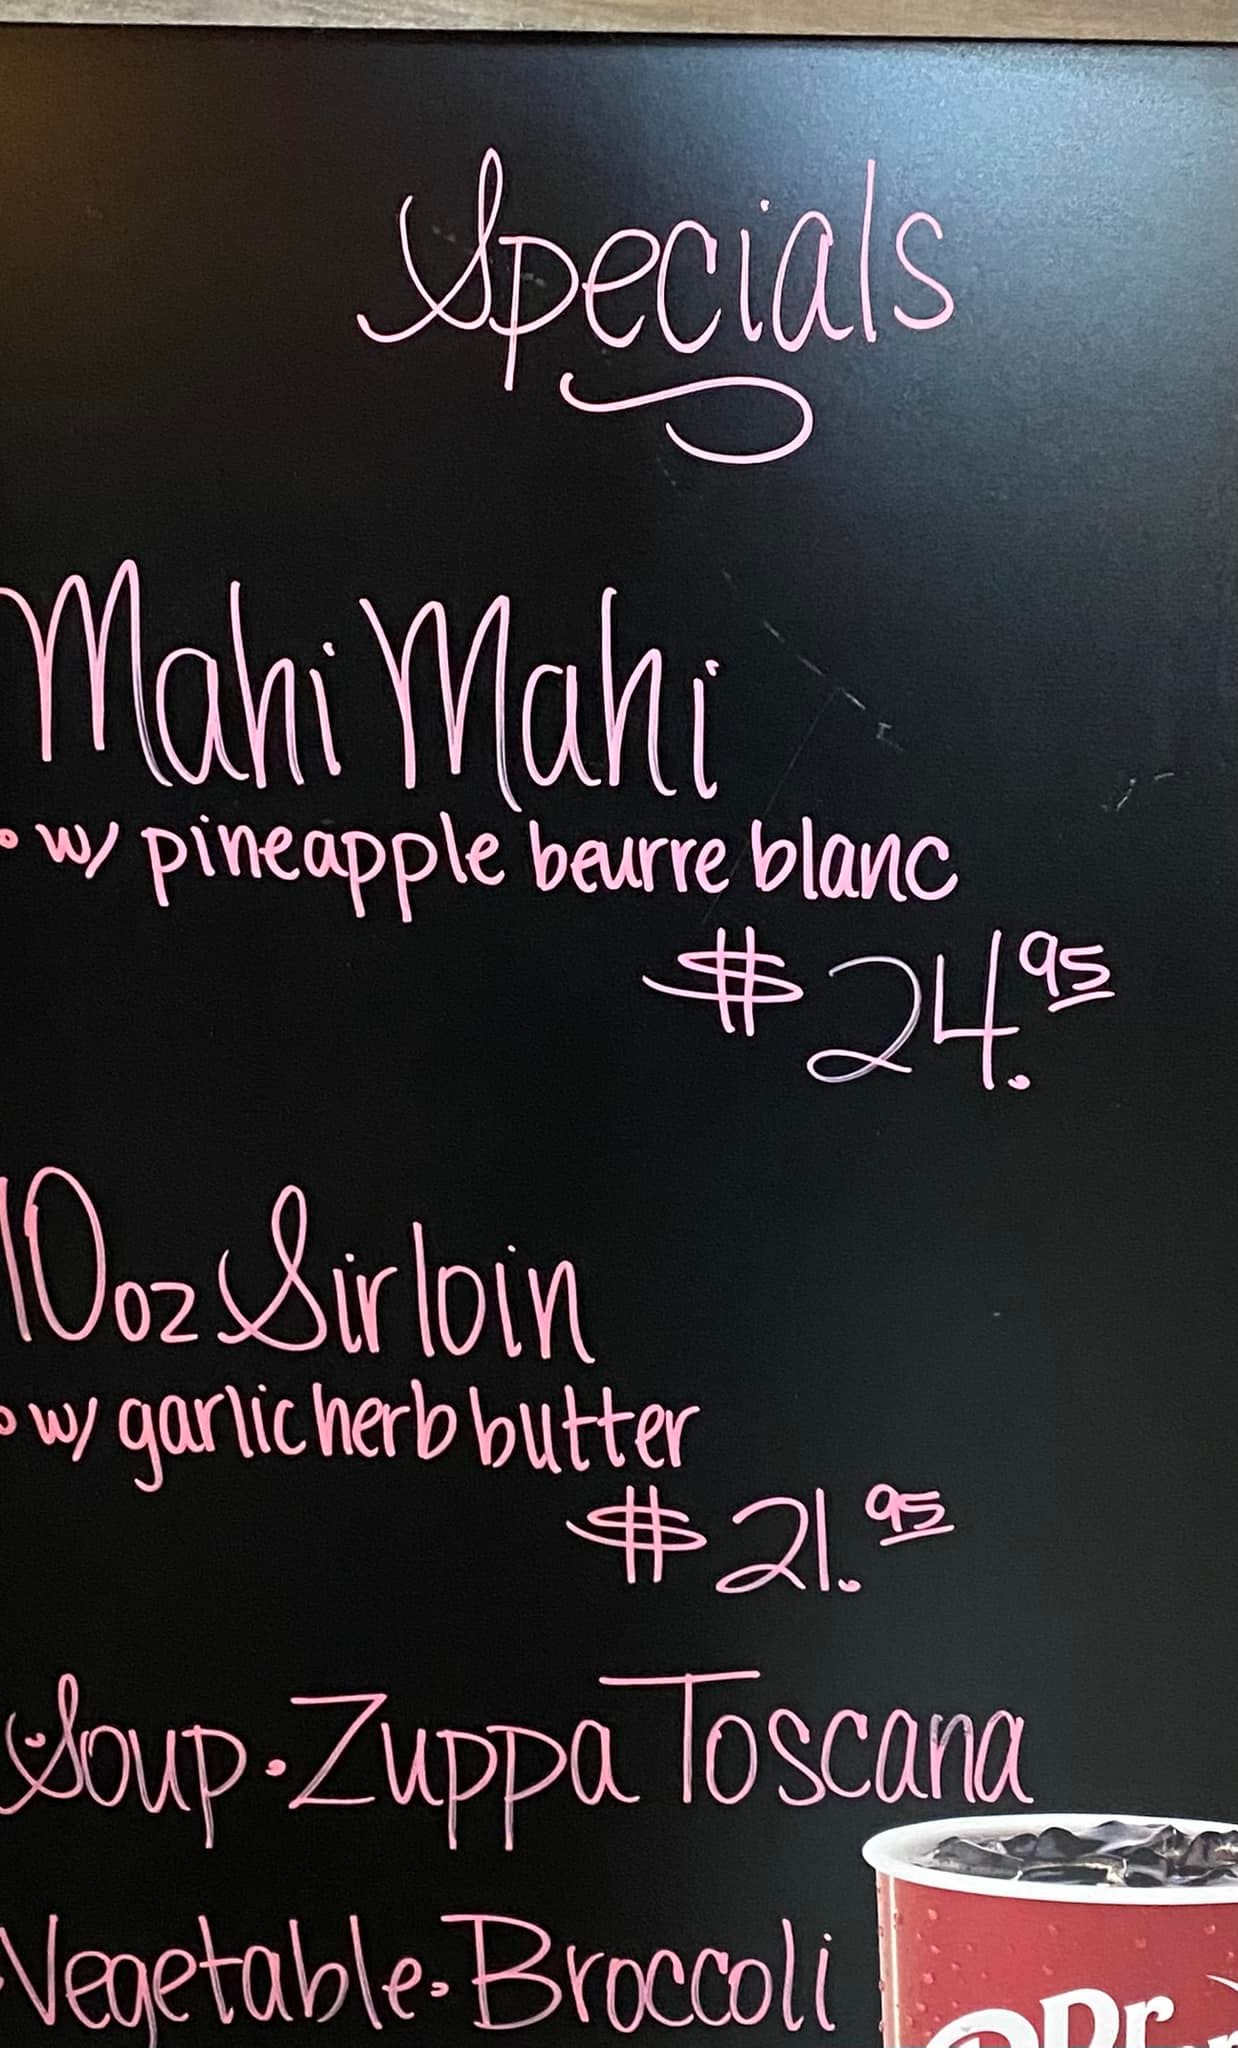 Specials
Mahi Mahi
• w/ pineapple beurre blanc
$24.95
10oz Sirloin
• w/ garlic herb butter
$21.95
Soup • Zuppa Toscana
Vegetable • Broccoli
Dr